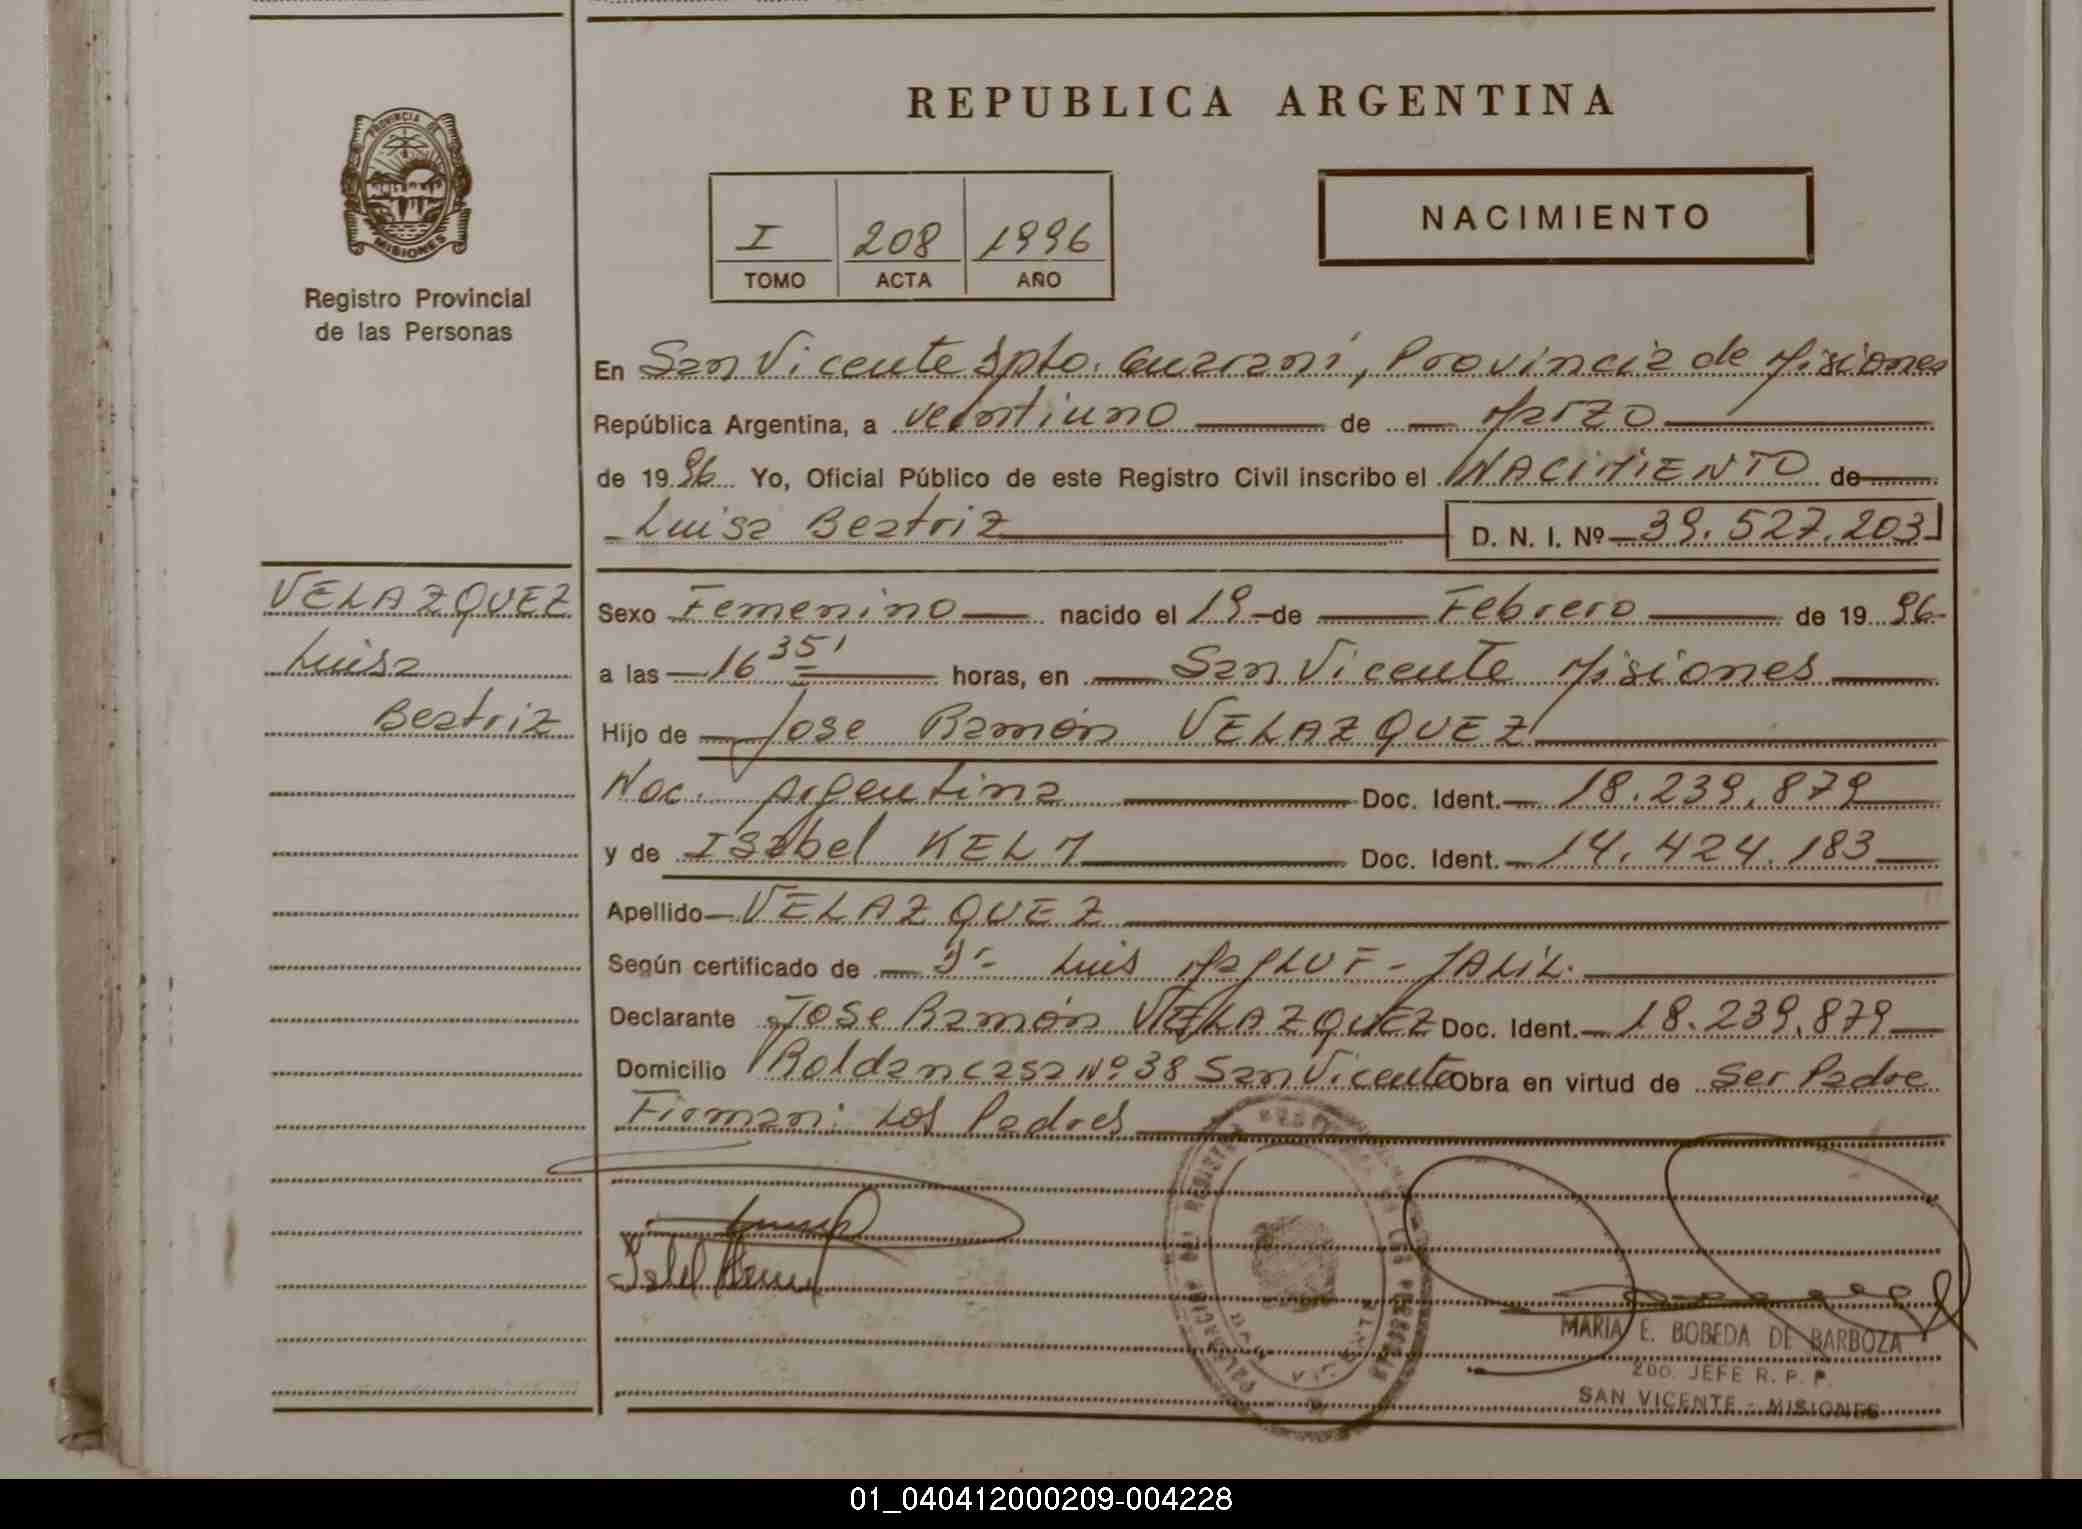 REPUBLICA ARGENTINA
PROVINCIA DE
MISIONES
Registro Provincial
de las Personas
I 208 1996
TOMO ACTA AÑO
NACIMIENTO
En San Vicente Dpto. Guaraní, Provincia de Misiones
República Argentina, a veintiuno de Marzo
de 1996 Yo, Oficial Público de este Registro Civil inscribo el NACIMIENTO de
Luisa Beatriz D. N. I. Nº 39.527.203
VELAZQUEZ
Luisa
Beatriz
Sexo Femenino nacido el 19 de Febrero de 1996
a las 16 35' horas, en San Vicente Misiones
Hijo de Jose Ramón VELAZQUEZ
Nac. Argentina Doc. Ident. 18.239.879
y de Isabel KELM Doc. Ident. 14.424.183
Apellido VELAZQUEZ
Según certificado de Dr Luis MaPLUF-JALIL.
Declarante Jose Ramón VELAZQUEZ Doc. Ident. 18.239.879
Domicilio Bº Roldan casa Nº 38 San Vicente Obra en virtud de Ser Padre
Firman: Los Padres
MARIA E. BOBEDA DE BARBOZA
2DO. JEFE R. P. P.
SAN VICENTE - MISIONES
01_040412000209-004228